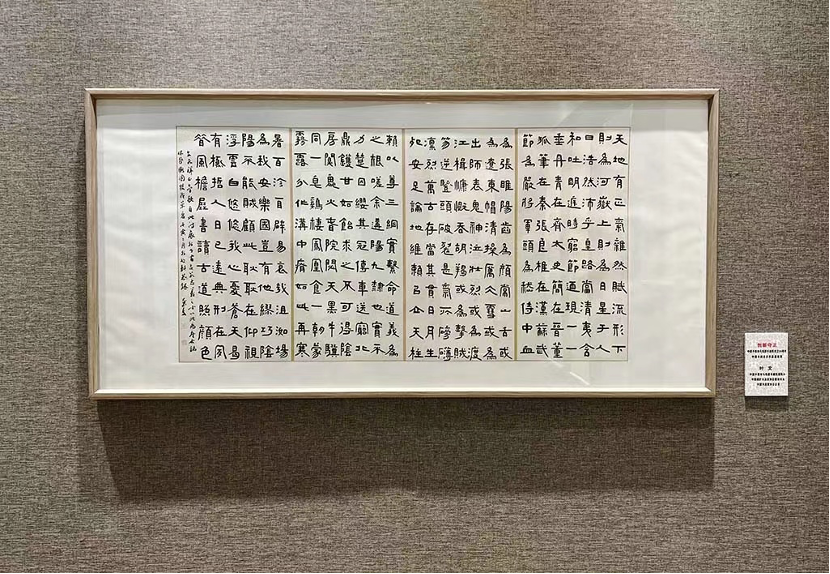 天地有正氣雜然賦流形下
則為河嶽上則為日星于人
曰浩然沛乎皇路當清夷含
和吐明廷時窮節道現一一
垂丹青在齊太史簡在晉董
狐筆在秦張良椎在漢蘇武
節為嚴將軍頭為嵇侍中血
為張睢陽齒為顏常山舌或
為遼東帽清操厲冰雪或為
出師表鬼神泣壯烈或為渡
江楫慷慨吞胡羯或為擊賊
笏逆豎頭破裂是氣所磅礴
凜烈萬古存當其貫日月生
死安足論地維賴以立天柱
賴以尊三綱實繫命道義為
之根嗟余遘陽九隸也實不
力楚囚纓其冠傳車送窮北
鼎鑊甘如飴求之不可得陰
房闃鬼火春院閟天黑牛驥
同一皂雞棲鳳凰食一朝蒙
霧露分作溝中瘠如此再寒
暑百沴自辟易哀哉沮洳場
為我安樂國豈有他繆巧陰
陽不能賊顧此耿耿在仰視
浮雲白悠悠我心憂蒼天曷
有極哲人日已遠典刑在夙
昔風檐展書讀古道照顏色